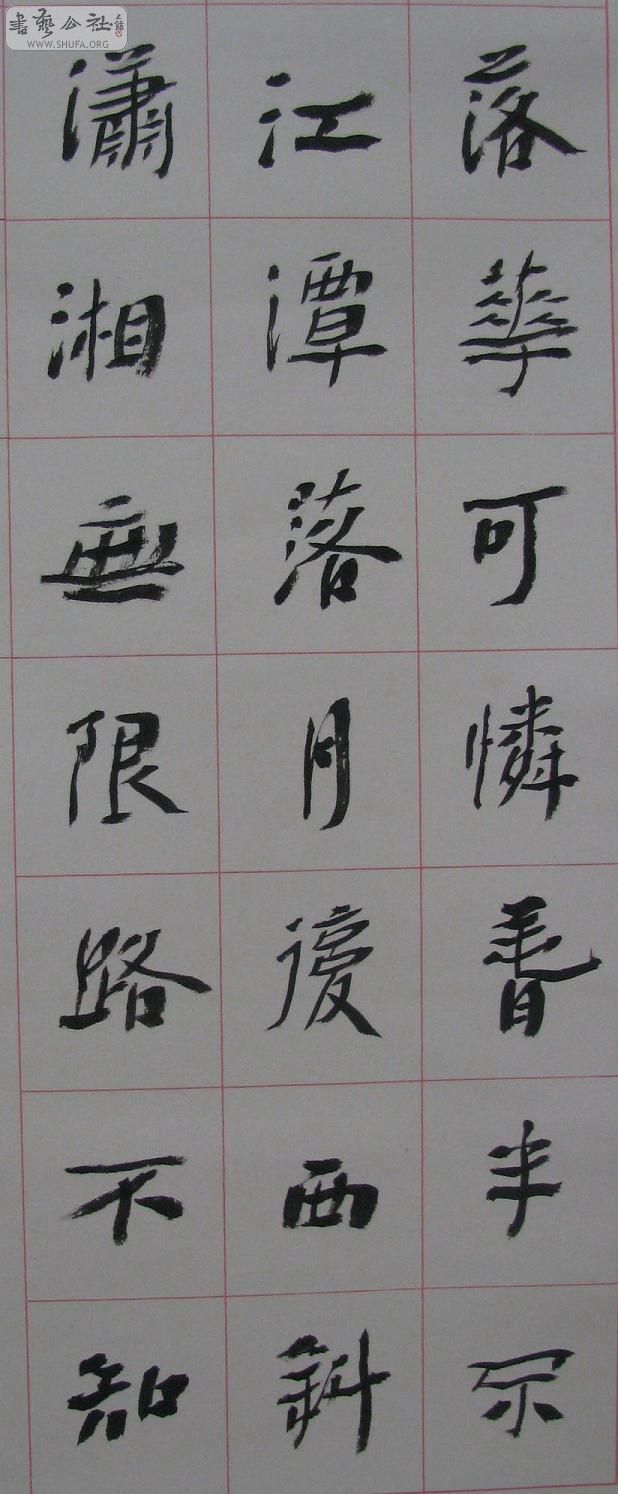 書藝公社
WWW.SHUFA.ORG
落華可憐春半不
江潭落月復西斜
瀟湘無限路不知